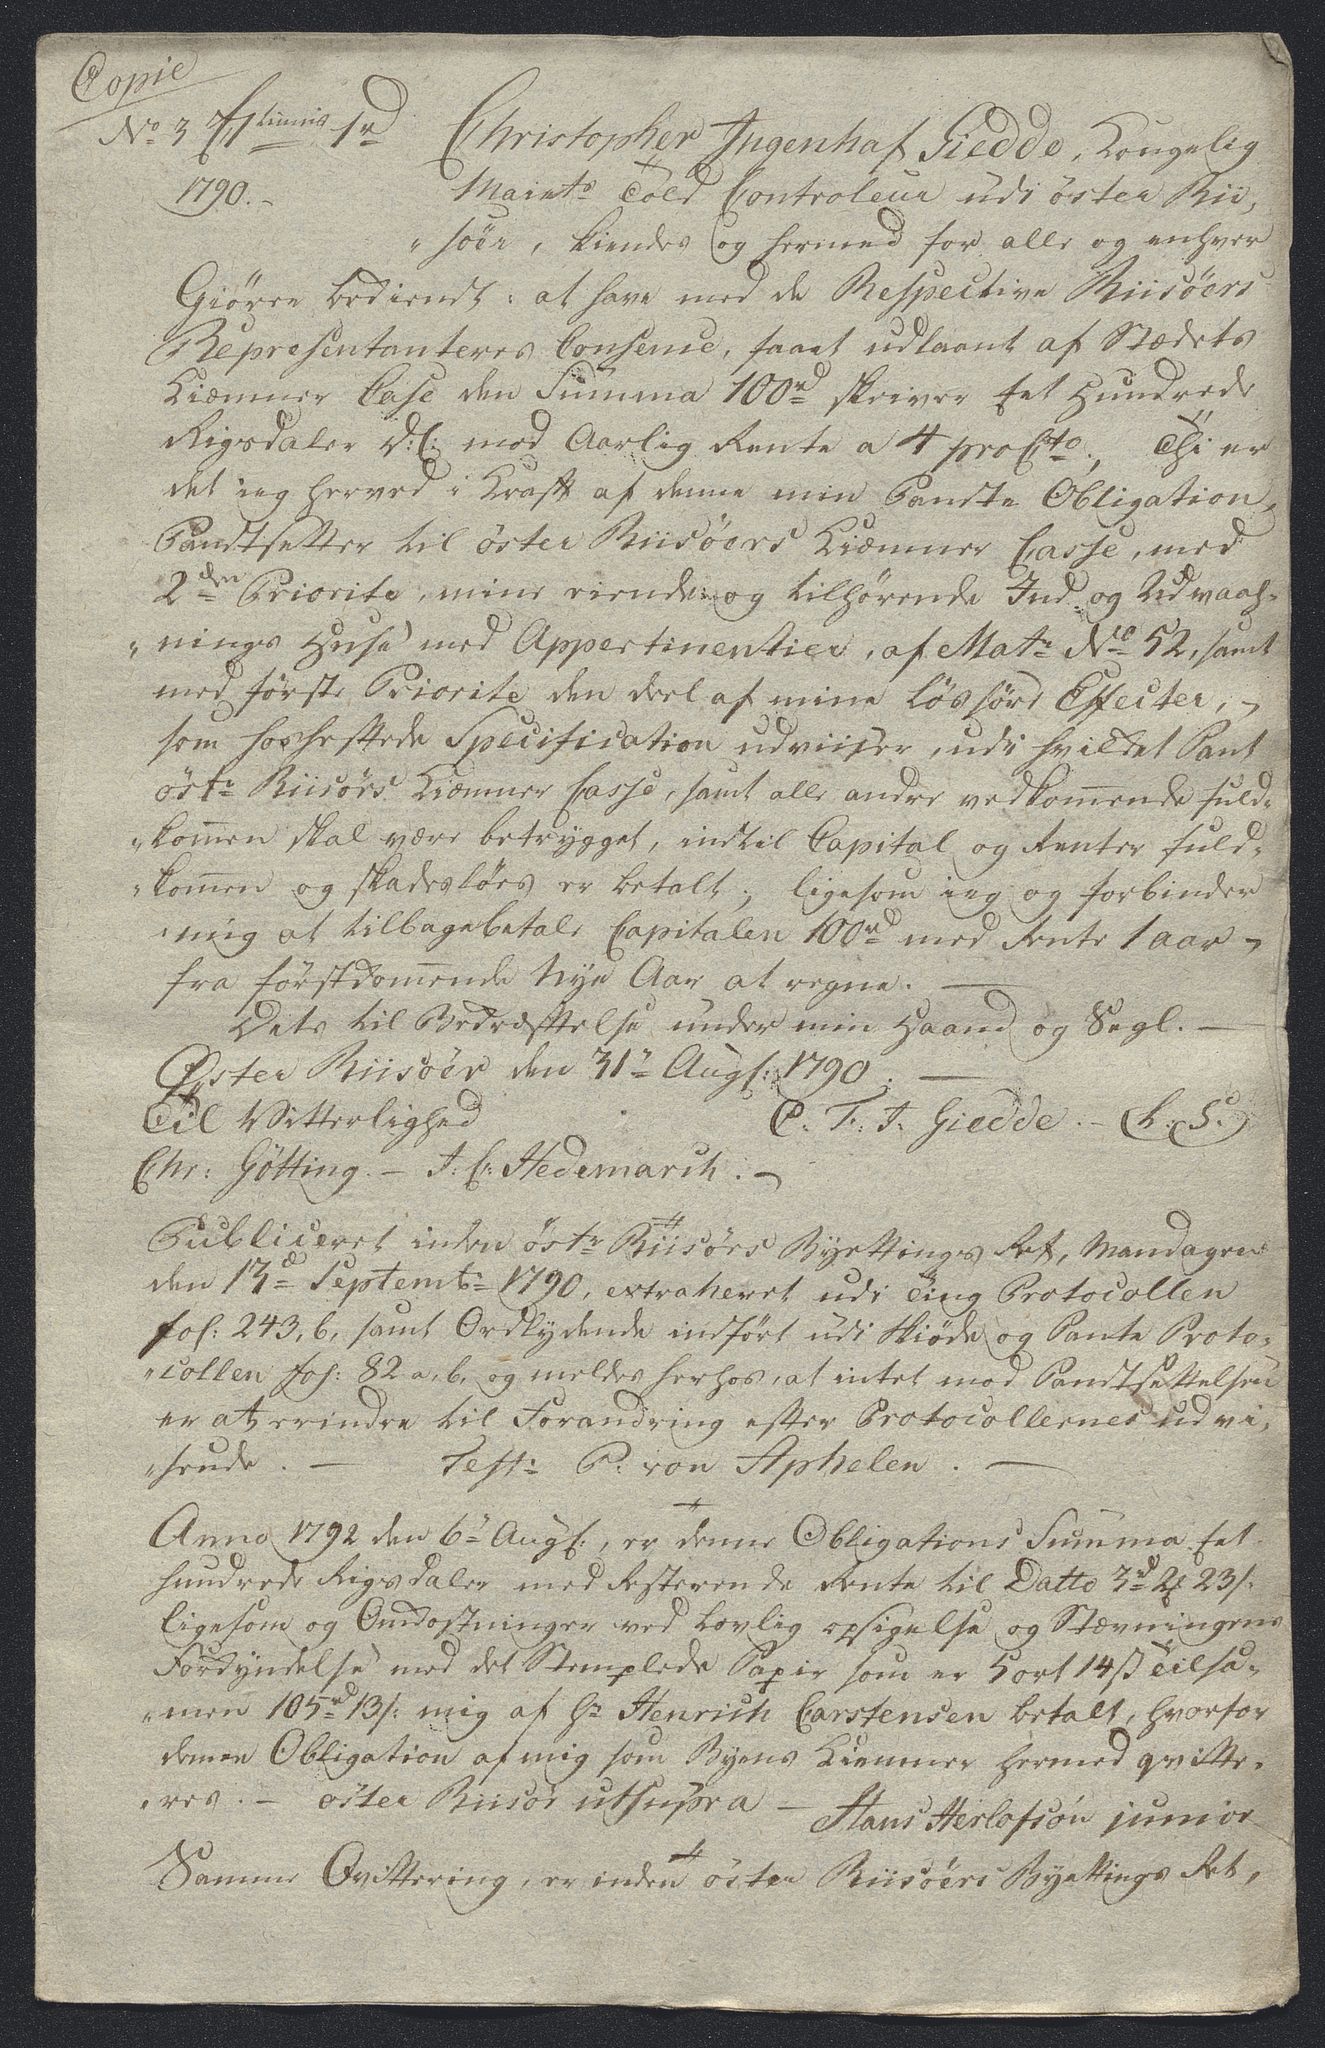 Copie
No 3 Cl 1 1rd Christopher Ingenhaf Giedde, Kongelig
1790. - Maiets Told Controleur udi öster Rii,
"söer, kiendes og hermed for alle og enhver
Giörer bekiendt: at have med de Respective Riisöers
Representanteres Consence, faaet udlaant af Stædets
Kiæmner Casse den Summa 100rd skriver Eet Hundrede
Rigsdaler D:C: mod Aarlig Rente a 4 pro Cto., Thi er
det ieg herved i Kraft af denne min Pandte Obligation,
Pandtsetter til öster Riisöers Kiæmner Casse, med
2den Priorite, mine eiende og tilhørende Ind og Udvaah-
"nings Huse med Appertinentier, af Matr No 52, samt
med förste Priorite den deel af mine Lös söre Effecter, -
som hoshæftede Specification udviiser, udi hvilket Pant
östr Riisörs Kiæmner Casse, samt alle andre vedkom̄ende fuld-
"kom̄en skal være betrygget, indtil Capital og Renter fuld-
"kom̄en og skadeslöes er betalt; ligesom ieg og forbinder
mig at tilbagebetale Capitalen 100rd med Rente 1 aar -
fra förstkom̄ende Nye Aar at regne. -
Dets til Bekræftelse under min Haand og Segl. -
Øster Riisöer den 31te Augs: 1790. -
Til Vitterlighed C. F. I. Giedde. - (L. S.)
Chr: Götting. - J: C: Hedemarch. -
Publiceret inden östr Riisörs Byettings Ret, Mandagen
den 13de Septembr 1790, extraheret udi Ting Protocollen
fol: 243, b, samt Ordlydende indfört udi Skiöde og Pante Proto-
"collen fol: 82 a, b, og meldes herhos, at intet mod Pandtsettelsen
er at erindre til Forandring efter Protocollernes udvi,
"sende. - Test: P: von Aphelen. -
Anno 1792 den 6te Augs:, er denne Obligations Summa Eet
hundrede Rigsdaler med Resterende Rente til Datto 3rd 2 23 s:
ligesom og Omkostninger ved Lovlig opsigelse og Stævningens
Forkyndelse med det Stemplede Papir som er 5 ort 14 s Tilsa-
"men 105rd 13 s: mig af Hr Henrich Carstensen betalt, hvorfor
denne Obligation af mig som Byens Kiemner hermed qvitte-
"res. - öster Riisör ut supra - Hans Herlofsön junior
Samme Qvittering, er inden öster Riisöers Byettings Ret,